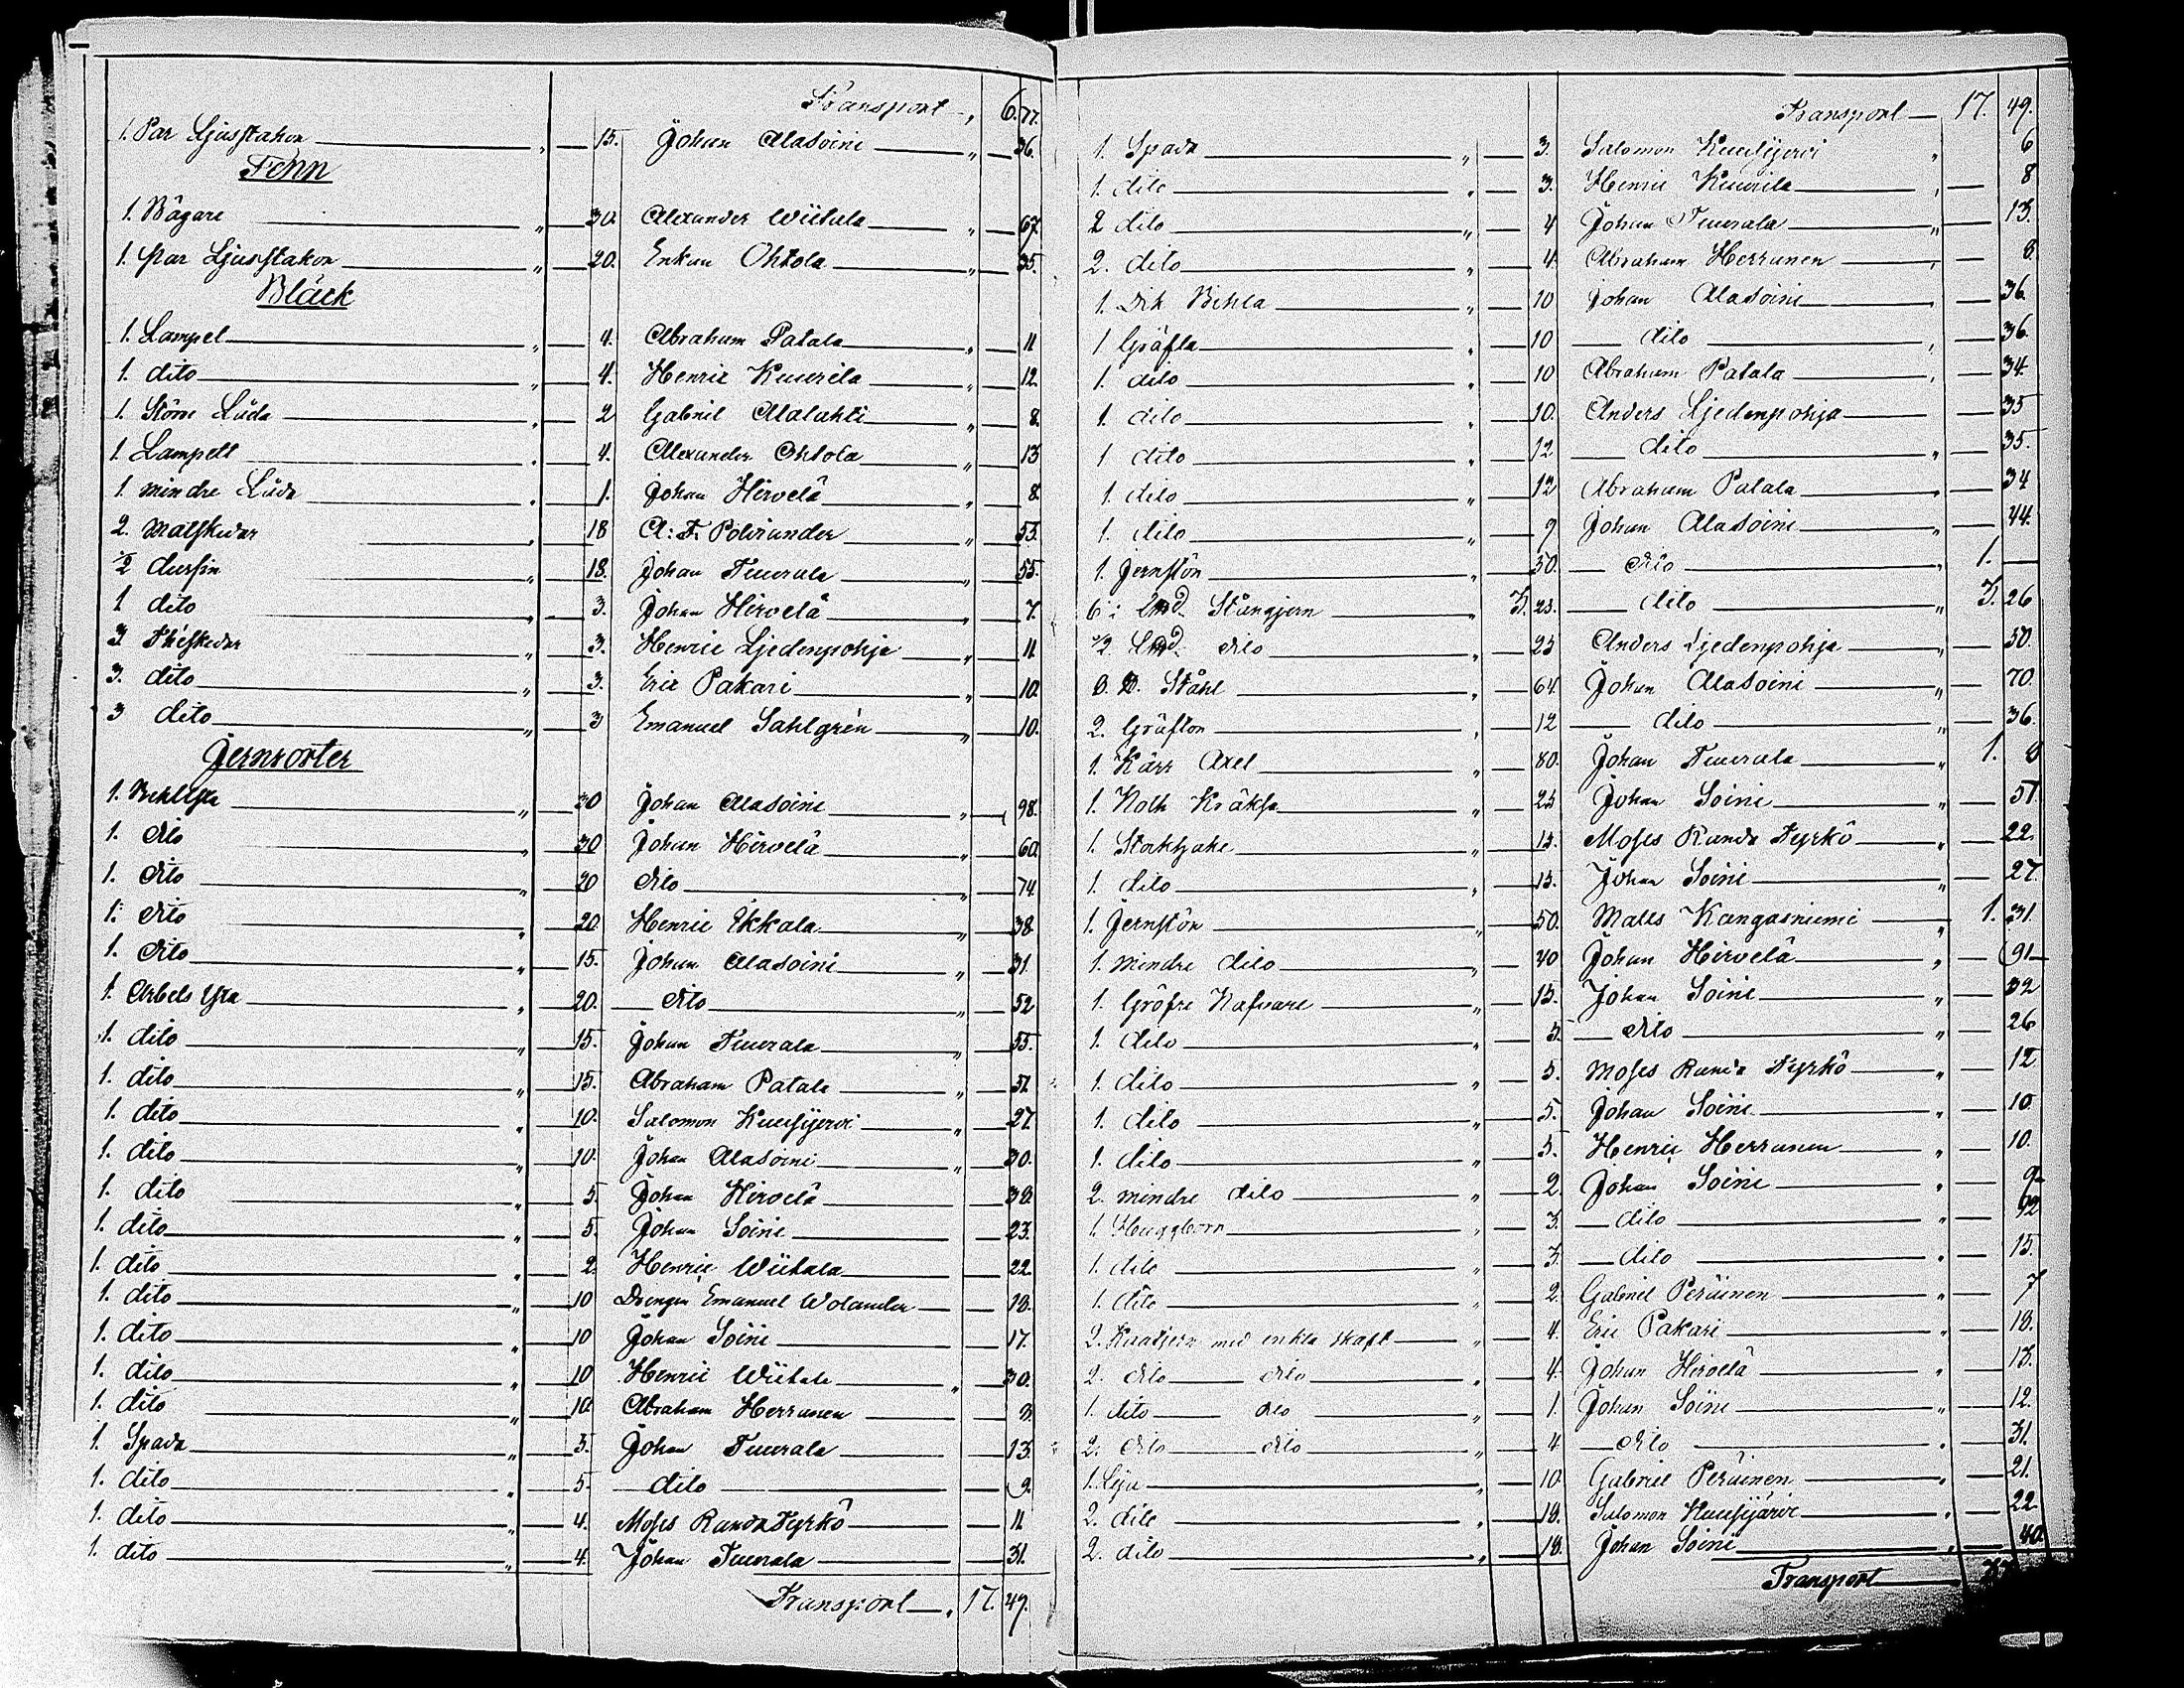 Transport „ 6. 77.
1. Par Ljusstakar „ 15. Johan Alasoini „ 36.
Tenn
1. Bägare „ 30. Alexander Wiitala „ 67.
1. par Ljusstakar „ 20. Enkan Ohtola „ 35.
Bläck
1. Lampet „ 4. Abraham Patala „ 11
1. dito „ 4. Henric Kuurila „ 12.
1. Större Låda „ 2 Gabriel Alalahti „ 8.
1. Lampett „ 4. Alexander Ohtola „ 13
1. mindre Låda „ 1. Johan Hirvelä „ 8.
2. Matskedar „ 18 A: F. Polviander „ 53.
1/2 dussin „ 18. Johan Tuurala „ 55.
1 dito „ 3. Johan Hirvelä „ 7.
3 Théskedar „ 3. Henric Ljedenpohja „ 11
3. dito „ 3. Eric Pakari „ 10.
3 dito „ 3 Emanuel Sahlgrén „ 10.
Jernsorter
1. Bihlyxa „ 30 Johan Alasoini „ 98.
1. dito „ 30 Johan Hirvelä „ 60.
1. dito „ 20 dito „ 74
1. dito „ 20. Henric Ikkala „ 38
1. dito „ 15. Johan Alasoini „ 31.
1. Arbets Yxa „ 20. dito „ 52
1. dito „ 15. Johan Tuurala „ 55.
1. dito „ 15. Abraham Patala „ 51
1. dito „ 10. Salomon Kuusijervi „ 27.
1. dito „ 10. Johan Alasoini „ 30.
1. dito „ 5 Johan Hirvelä „ 38.
1. dito „ 5. Johan Soini 23.
1. dito „ 2. Henric Wiitala 22.
1. dito „ 10 Drengen Emanuel Wolander 18.
1. dito „ 10 Johan Soini 17.
1. dito „ 10 Henric Wiitala „ 30.
1. dito „ 10. Abraham Herranen 8.
1. Spada „ 5. Johan Tuurala 13.
1. dito „ 5 dito 9.
1. dito „ 4. Moses Randa Tyrkö 11
1. dito „ 4. Johan Tuurala 31.
Transport „ 17. 49.
Transport 17. 49.
1. Spada „ 3. Salomon Kuusijervi „ 6
1. dito „ 3. Henric Kuurila „ 8
2 dito „ 4 Johan Tuurala „ 13.
2. dito „ 4. Abraham Herranen „ 8.
1. Dik Bihla „ 10 Johan Alasoini „ 36.
1 Gräfta „ 10 dito „ 36.
1. dito „ 10 Abraham Patala „ 34
1. dito „ 10. Anders Ljedenpohja 35
1 dito „ 12 dito „ 35.
1. dito „ 12 Abraham Patala „ 34
1. dito „ 9 Johan Alasoini „ 44.
1. Jernstör „ 50. dito „ 1.
6: Stångjern 3. 23. dito „ 3. 26
1/2 dito „ 25 Anders Ljedenpohja „ 50.
Stål „ 64. Johan Alasoini „ 70.
2. Gräftor „ 12 dito „ 36.
1. Kärr Axel „ 80. Johan Tuurala „ 1. 8
1. Noth Kräksa „ 25 Johan Soini „ 51.
1. Stockhake „ 15. Moses Randa Tyrkö „ 22
1. dito „ 15. Johan Soini „ 27.
1. Jernstör „ 50. Matts Kangasniemi „ 1. 31.
1. mindre dito „ 40 Johan Hirvelä „ 91
1. Gröfre Nafvare „ 15. Johan Soini „ 32
1. dito „ 5. dito „ 26
1. dito „ 5. Moses Randa Tyrkö „ 12
1. dito „ 5. Johan Soini „ 10.
1. dito „ 5. Henric Herranen „ 10.
2. mindre dito „ 2. Johan Soini „ 9.
1. Huggjern „ 3. dito „ 12
1. dito „ 3. dito „ 15.
1. dito „ 2. Gabriel Peräinen „ 7
2. med enkla skaft „ 4. Eric Pakari „ 18.
2. dito dito „ 4. Johan Hirvelä „ 13.
1. dito dito „ 1. Johan Soini „ 12.
2. dito dito „ 4 dito „ 31.
1. Lija „ 10. Gabriel Peräinen „ 21.
2. dito „ 18. Salomon Kuusijärvi „ 22.
2. dito „ 18. Johan Soini „ 40.
Transport